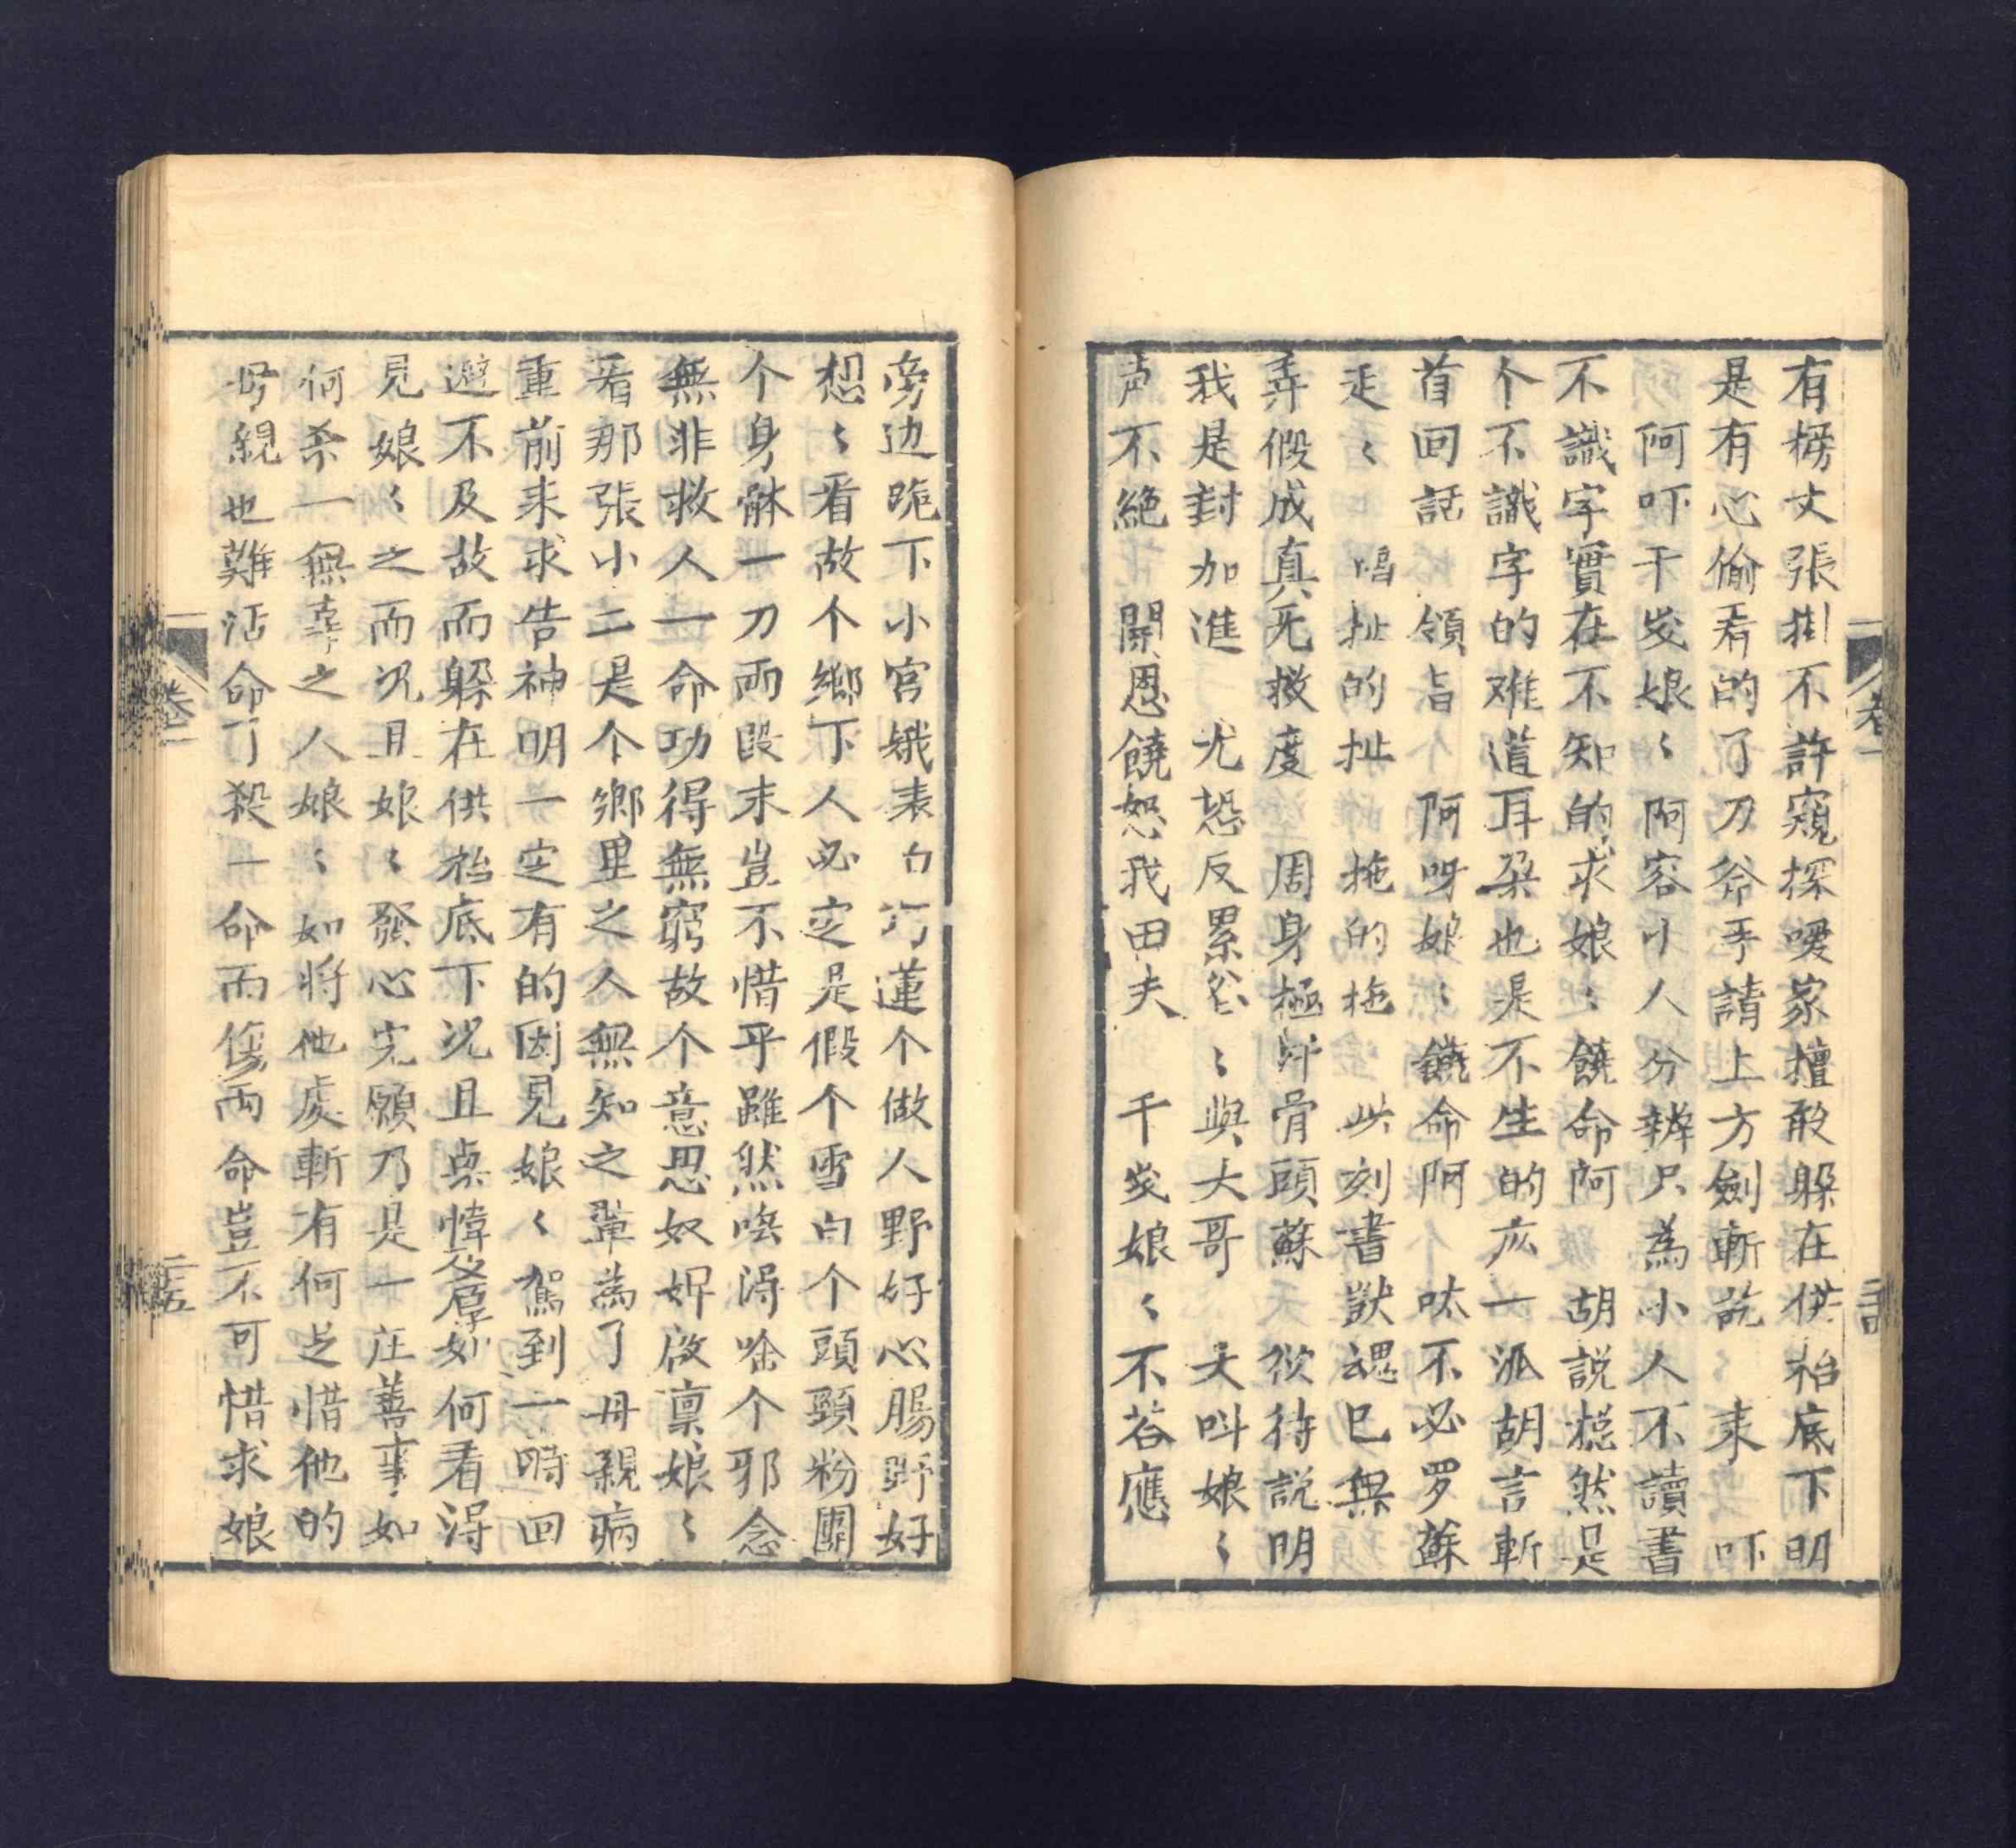 有榜文張掛不許窺探噯家擅敢躲在供枱底下明
是有心偷看的了刀斧手請上方劍斬訖〻 来 吓
阿吓千岁娘〻 阿容小人分辨只為小人不讀書
不識字實在不知的求娘〻饒命阿 胡説縂然是
个不識字的难道耳朶也是不生的広一派胡言斬
首回話 領旨 阿呀娘〻饒命阿 呔不必罗蘇
走〻 唱扯的扯 拖的拖 此刻書獃魂已無
弄假成真旡救度 周身極骨頭蘇 欲待説明
我是封加進 尤恐反累爷〻與大哥 大叫娘〻
声不絶 開恩饒恕我田夫 千岁娘〻不答應
卷一
旁边跪下小宫娥素白巧蓮个做人野好心腸野好
想〻看故个鄉下人必定是假个雪白个頭頸粉團
个身躰一刀兩段末豈不惜乎雖然唤淂啥个邪念
無非救人一命功得無窮故个意思奴婢啟禀娘〻
看那張小二是个鄉里之人無知之輩為了母親病
重前来求告神明一定有的因見娘〻駕到一時回
避不及故而躲在供枱底下况且桌幃及厚如何看淂
見娘〻之面况且娘〻發心完願乃是一庄善事如
何杀一無辜之人娘〻如将他處斬有何足惜他的
母親也難活命了殺一命而傷兩命豈不可惜求娘
卷一
二五